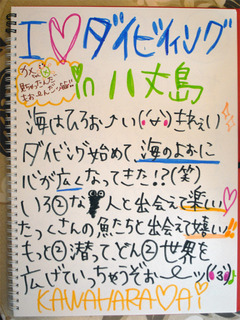 I♡ダイビィング
in 八丈島
海はひろお〜い(^^)きれぇい
ダイビング始めて、海のように
心が広くなってきた!?(笑)
いろ②な人と出会えて楽しい
たっくさんの魚たちと出会えて嬉しい!!
もっと②潜って、どん②世界を
広げていっちゃうぞぉーッ(^3^)♪
KAWAHARA♡Ai